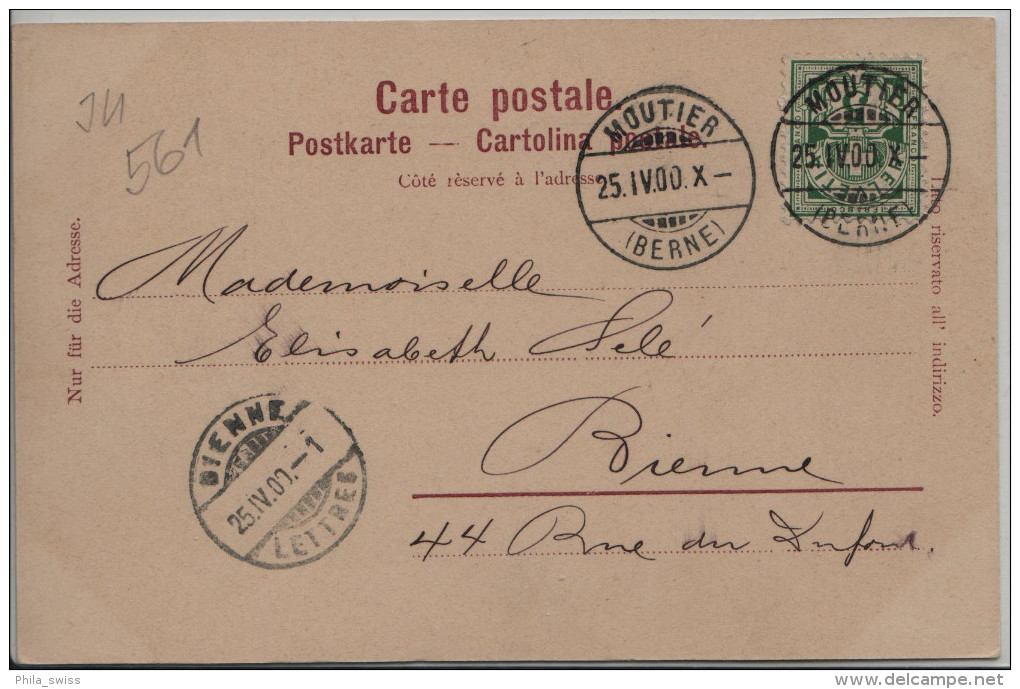 JU
561
Carte postale.
Postkarte — Cartolina postale.
Côté réservé à l'adresse
MOUTIER
25.IV.00.X—
(BERNE)
MOUTIER
25.IV.00.X—
(BERNE)
HELVETIA
FRANCO
Nur für die Adresse.
Lato riservato all' indirizzo.
Mademoiselle
Elisabeth Selé
Bienne
44 Rue du Dufour.
BIENNE
25.IV.00.—1
LETTRES
Phila_swiss
delcampe.net